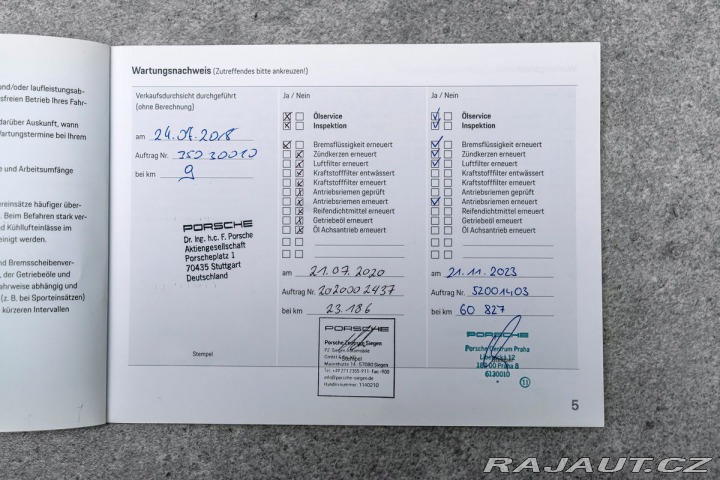 und/oder laufleistungsab-
sfreien Betrieb Ihres Fahr-
darüber Auskunft, wann
Wartungstermine bei Ihrem
e und Arbeitsumfänge
ereinsätze häufiger über-
Beim Befahren stark ver-
d Kühllufteinlässe im
einigt werden.
nd Bremsscheibenver-
, der Getriebeöle und
ahrweise abhängig und
(z. B. bei Sporteinsätzen)
kürzeren Intervallen
Wartungsnachweis (Zutreffendes bitte ankreuzen!)
Verkaufsdurchsicht durchgeführt
(ohne Berechnung)
am 24.07.2018
Auftrag Nr. 35030010
bei km 9
PORSCHE
Dr. Ing. h.c. F. Porsche
Aktiengesellschaft
Porscheplatz 1
70435 Stuttgart
Deutschland
Stempel
Ja / Nein
Ölservice
Inspektion
Bremsflüssigkeit erneuert
Zündkerzen erneuert
Luftfilter erneuert
Kraftstofffilter entwässert
Kraftstofffilter erneuert
Antriebsriemen geprüft
Antriebsriemen erneuert
Reifendichtmittel erneuert
Getriebeöl erneuert
Öl Achsantrieb erneuert
am 21.07.2020
Auftrag Nr. 2020002437
bei km 23.186
PORSCHE
Porsche Zentrum Siegen
Stempel
57080 Siegen
info@porsche-siegen.de
Händlernummer: 1140210
Ja / Nein
Ölservice
Inspektion
Bremsflüssigkeit erneuert
Zündkerzen erneuert
Luftfilter erneuert
Kraftstofffilter entwässert
Kraftstofffilter erneuert
Antriebsriemen geprüft
Antriebsriemen erneuert
Reifendichtmittel erneuert
Getriebeöl erneuert
Öl Achsantrieb erneuert
am 21.11.2023
Auftrag Nr. 52001403
bei km 60 827
PORSCHE
Porsche Centrum Praha
Praha 8
6130010
11
5
RAJAUT.CZ